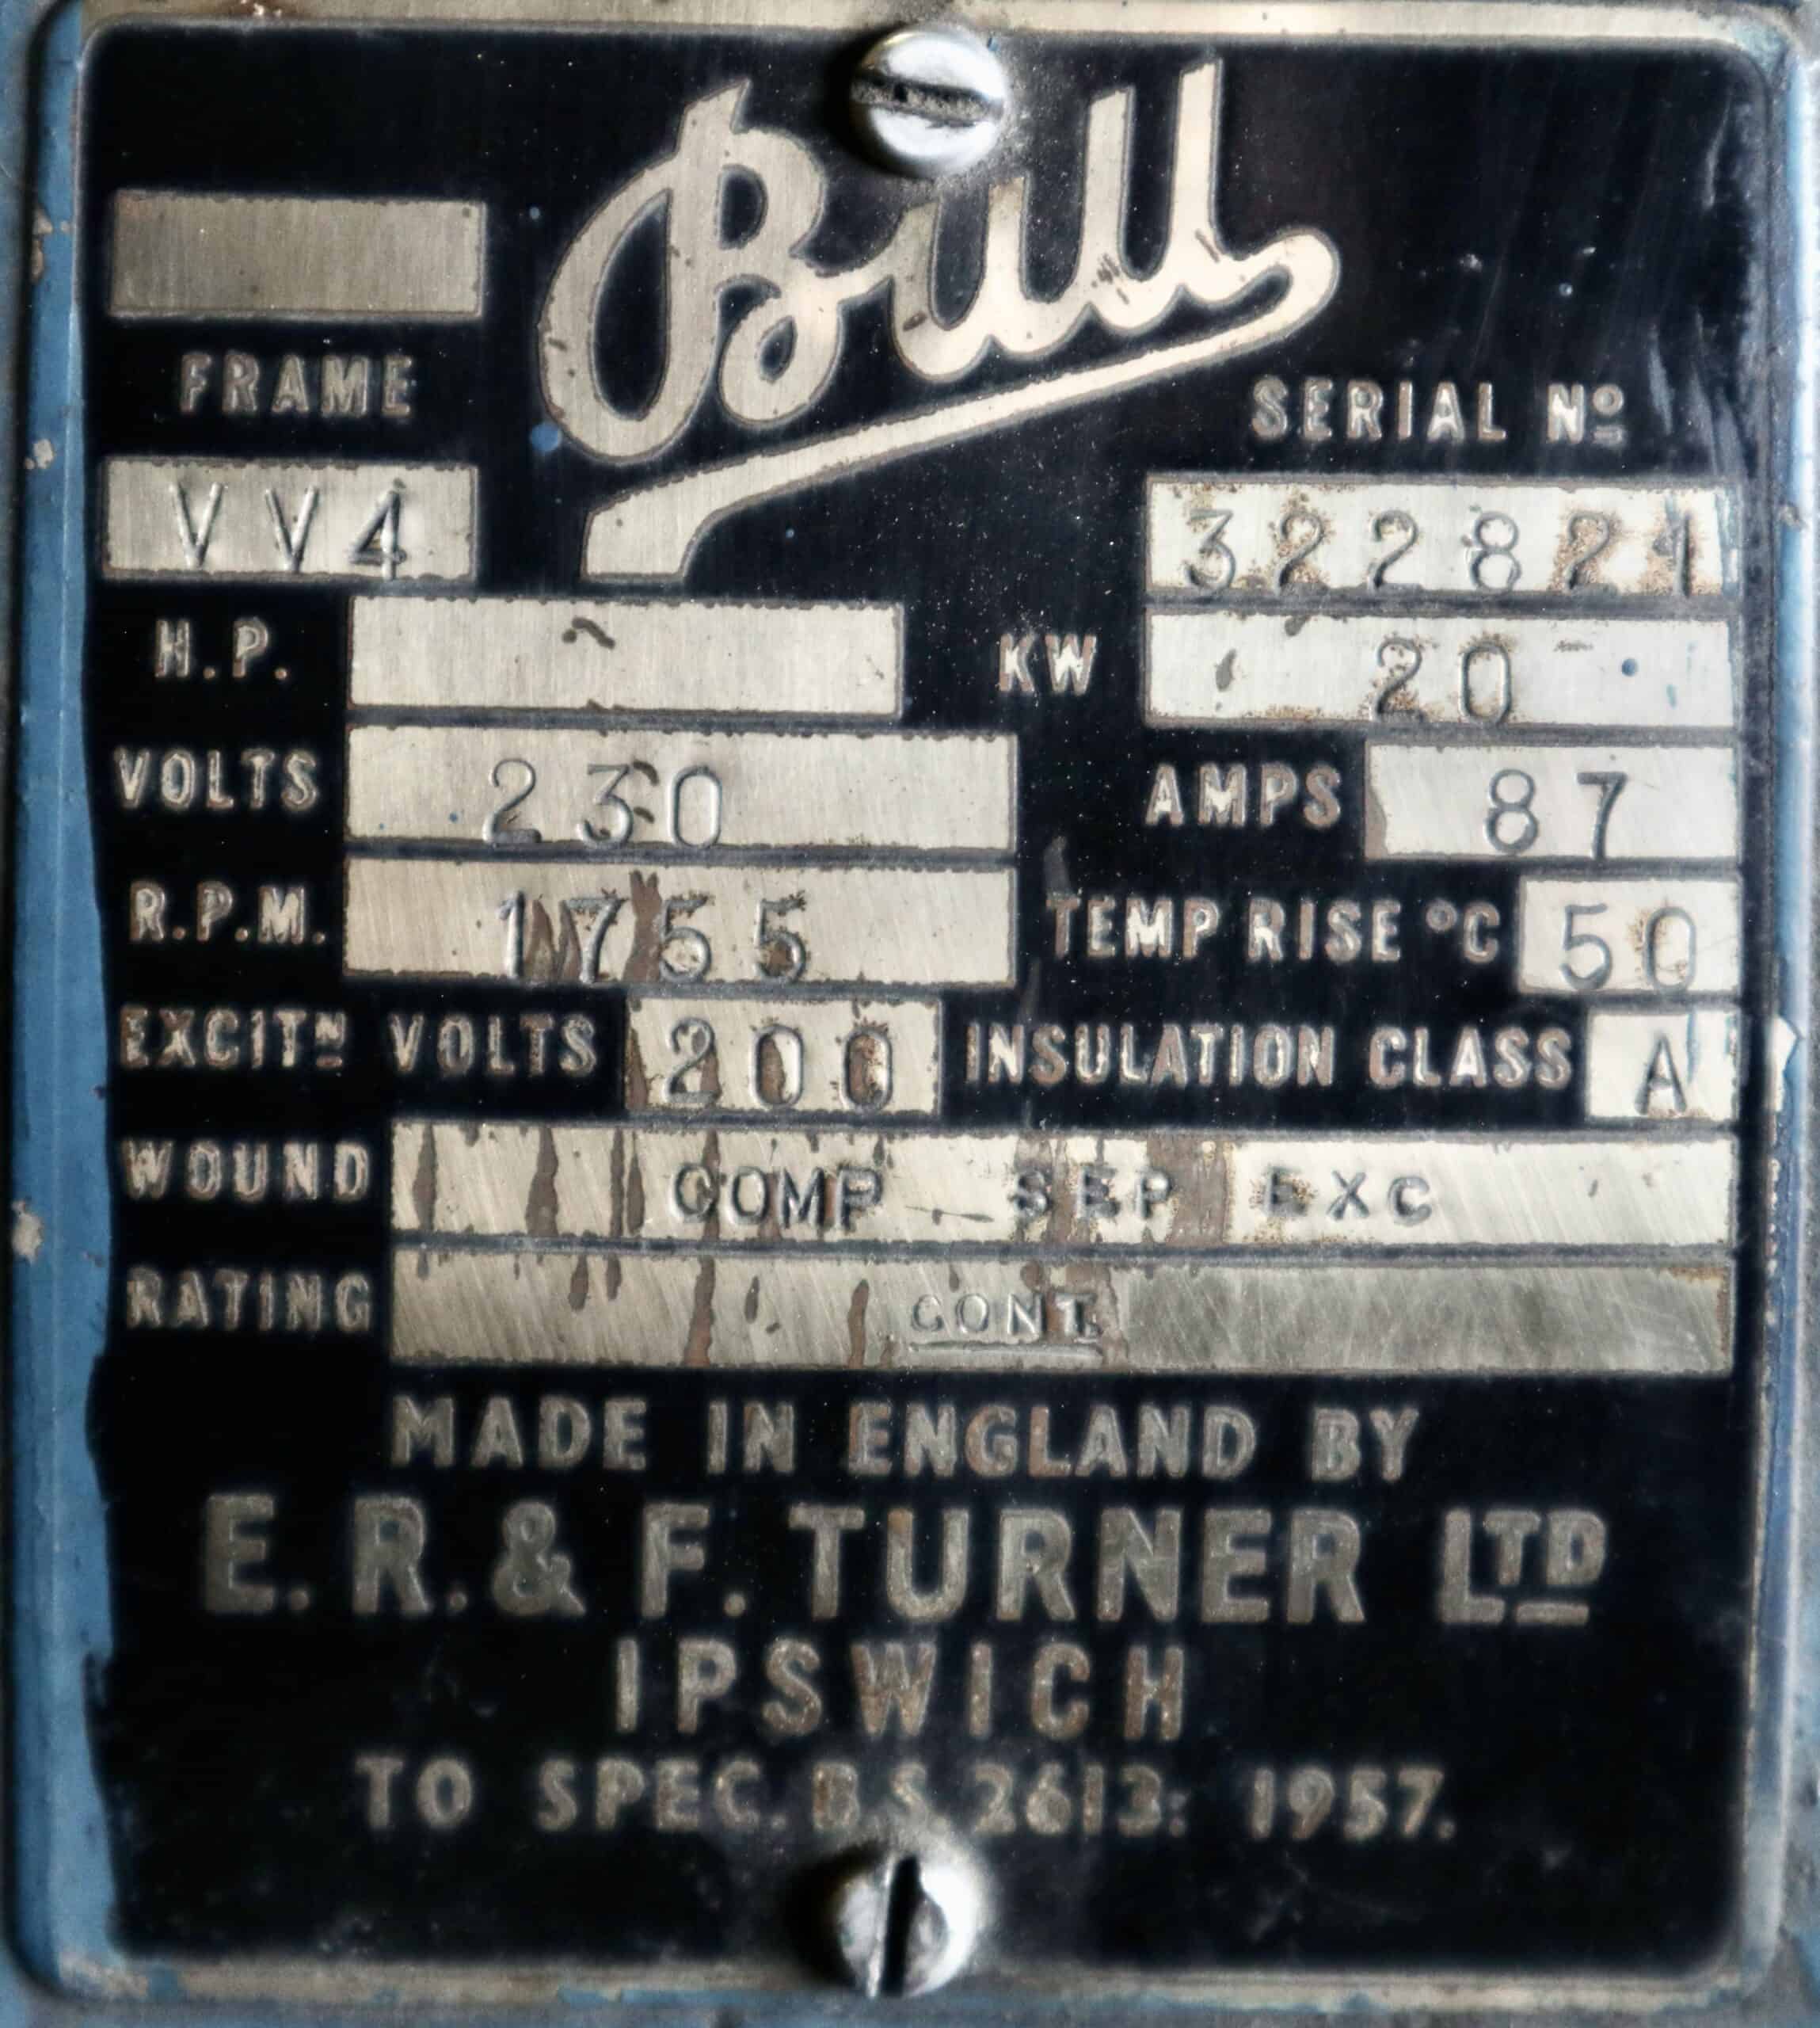 Bull
FRAME
SERIAL Nº
VV4
322821
H.P.
KW 20
VOLTS 230
AMPS 87
R.P.M. 1755
TEMP RISE °C 50
EXCITN VOLTS 200
INSULATION CLASS A
WOUND COMP - SEP EXC
RATING CONT.
MADE IN ENGLAND BY
E. R. & F. TURNER LTD
IPSWICH
TO SPEC. B.S. 2613: 1957.